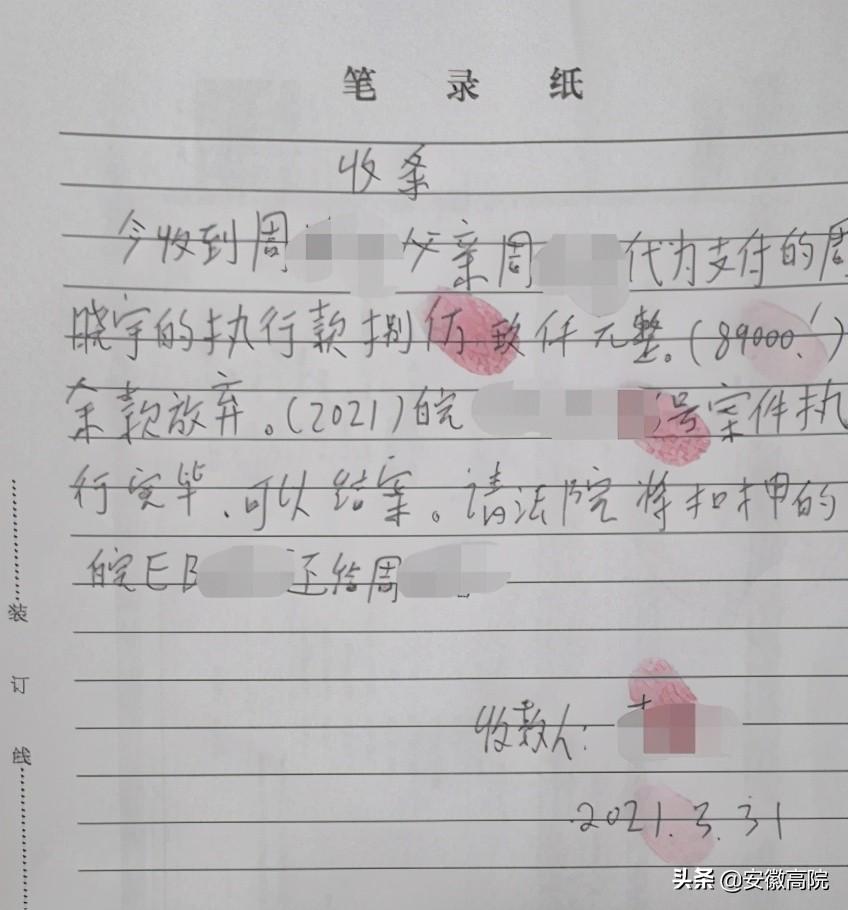 笔录纸
收条
今收到周 父亲周 代为支付的周
晓宇的执行款捌仿玖仟元整。(89000.')
余款放弃。(2021)皖 号案件执
行完毕、可以结案。请法院将扣押的
皖EB 还给周
收款人:
2021.3.31
装订线
头条 @安徽高院